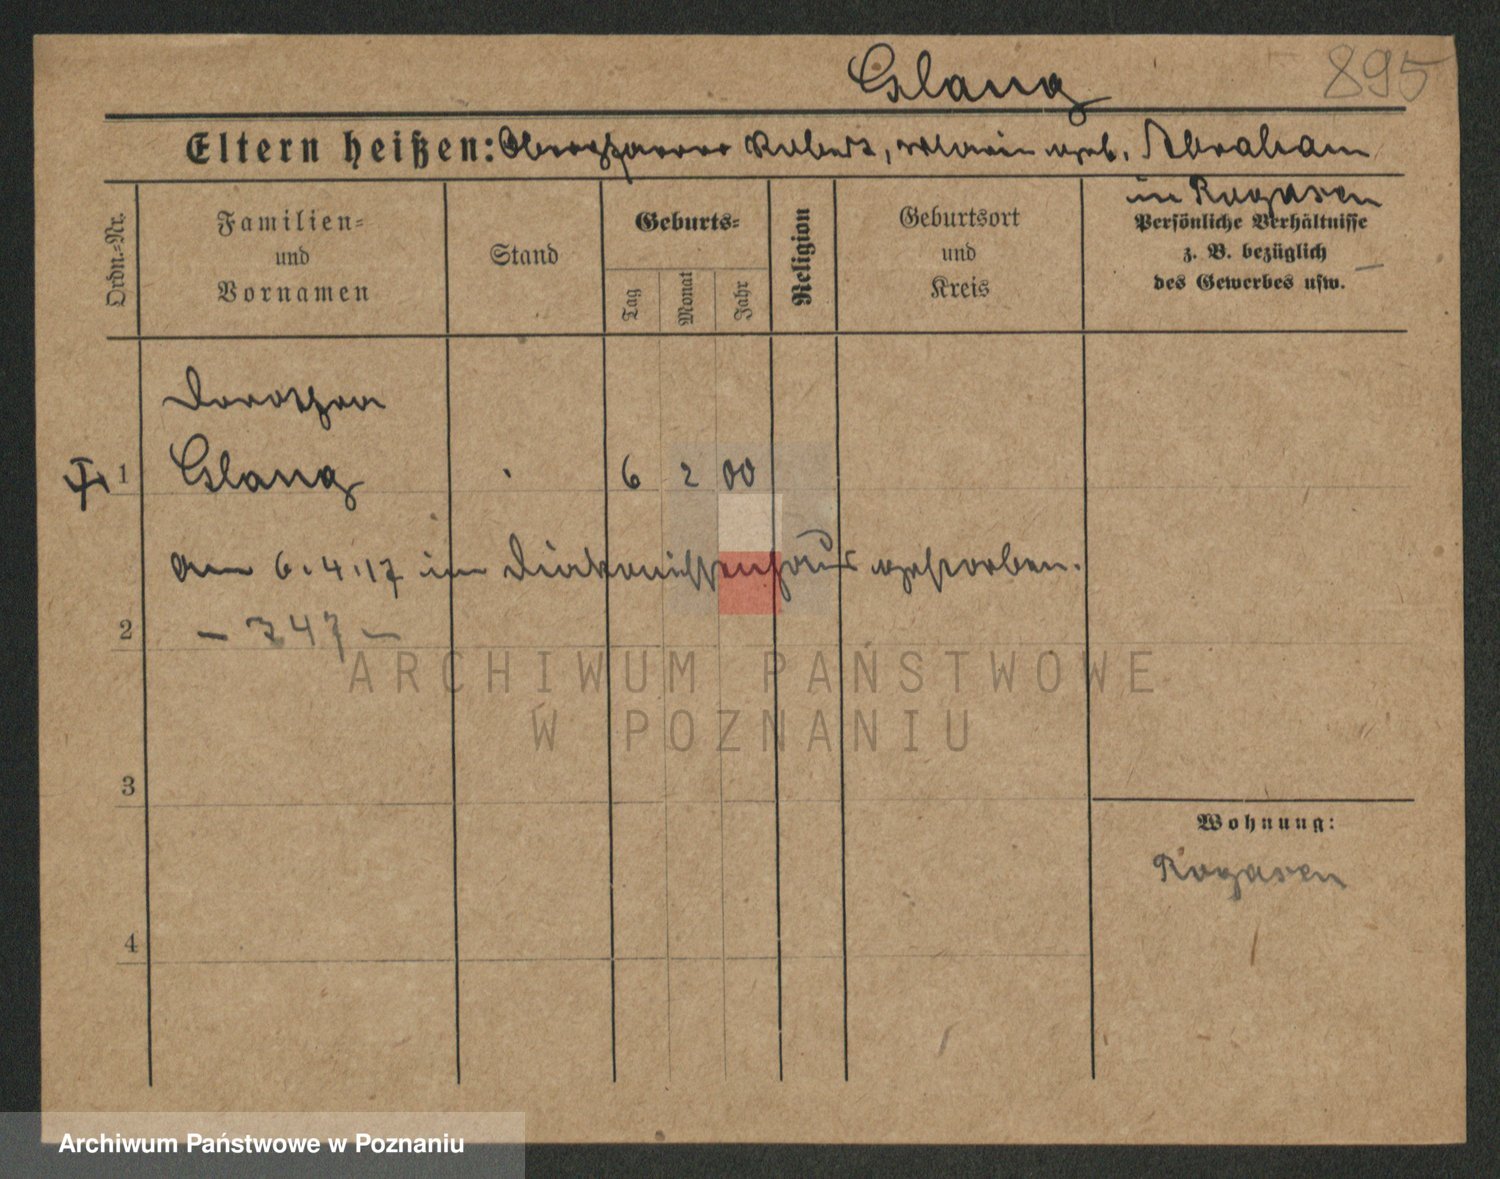 Glang
895
Eltern heißen: Oberpfarrer Robert, Marie geb. Abraham
in Rogasen
Ordn.-Nr.
Familien-
und
Vornamen
Stand
Geburts-
Tag
Monat
Jahr
Religion
Geburtsort
und
Kreis
Persönliche Verhältnisse
z. B. bezüglich
des Gewerbes usw.
Dorothea
1 Glang 6 2 00
am 6.4.17 im Diakonissenhaus gestorben.
2 – 747 –
ARCHIWUM PAŃSTWOWE
W POZNANIU
3
Wohnung:
Rogasen
4
Archiwum Państwowe w Poznaniu